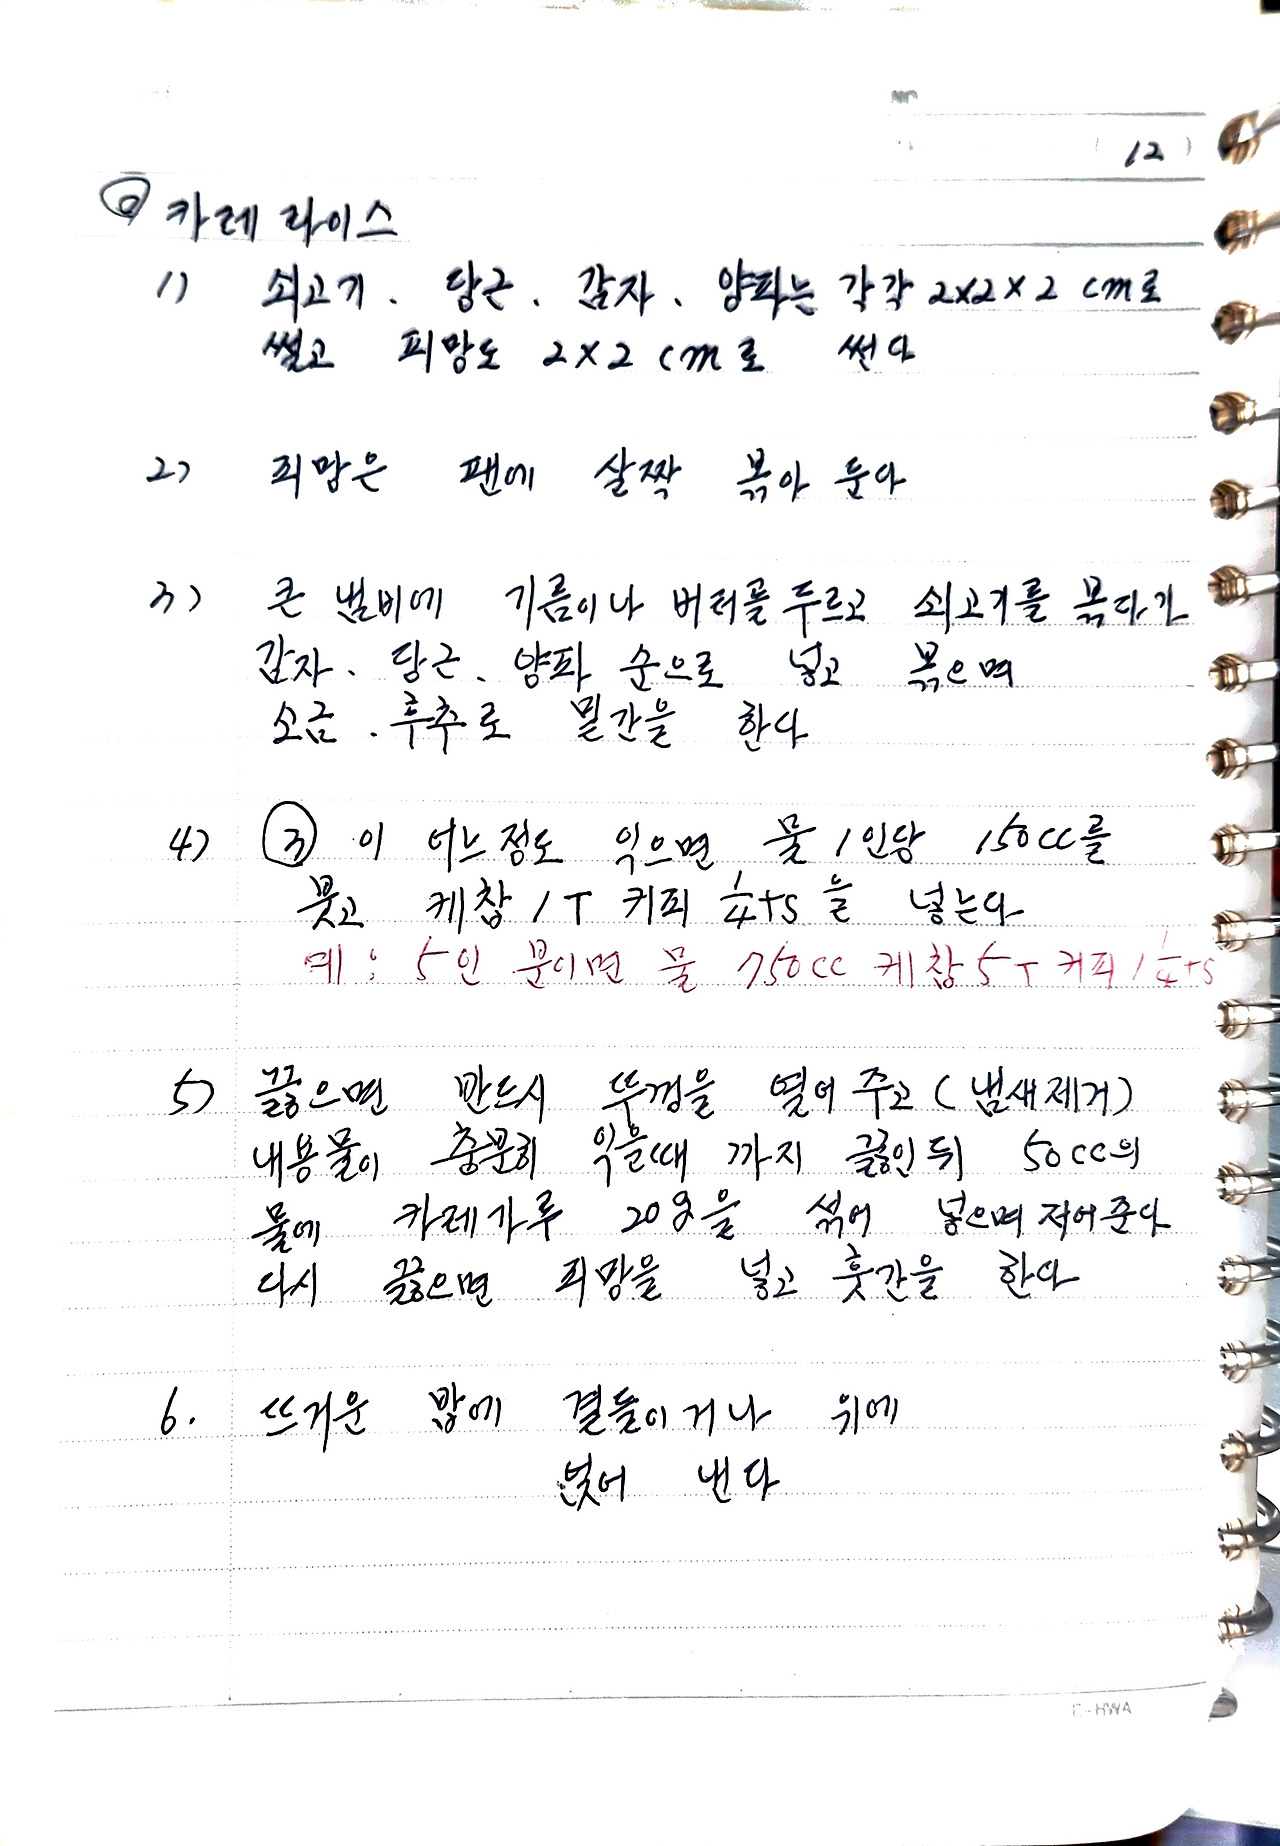 ( 12 )
◎ 카레 라이스
1) 쇠고기. 당근. 감자. 양파는 각각 2x2x2 cm로
썰고 피망도 2x2 cm로 썬다
2) 피망은 팬에 살짝 볶아 둔다
3) 큰 냄비에 기름이나 버터를 두르고 쇠고기를 볶다가
감자. 당근. 양파 순으로 넣고 볶으며
소금. 후추로 밑간을 한다
4) ③ 이 어느정도 익으면 물 1인당 150cc를
붓고 케찹 1T 커피 1/4ts을 넣는다
예: 5인 분이면 물 750cc 케찹 5T 커피 1 1/4ts
5) 끓으면 반드시 뚜껑을 열어 주고 (냄새제거)
내용물이 충분히 익을때 까지 끓인 뒤 50cc의
물에 카레가루 20g을 섞어 넣으며 저어준다
다시 끓으면 피망을 넣고 훗간을 한다
6. 뜨거운 밥에 곁들이거나 위에
얹어 낸다
E-HWA